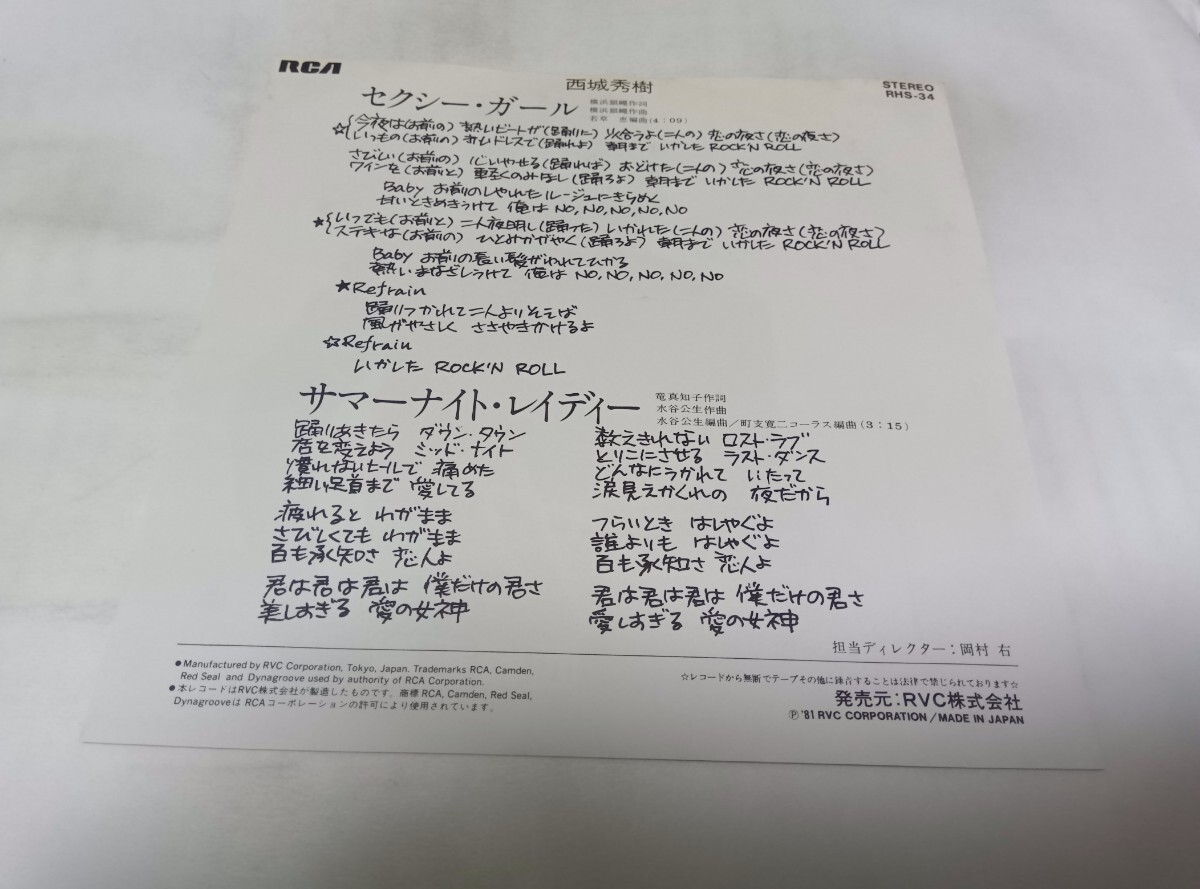 RCA
西城秀樹
STEREO
RHS-34
セクシー・ガール
横浜銀蝿作詞
横浜銀蝿作曲
若草 恵編曲(4:09)
☆{今夜は(お前の) 熱いビートが(踊りに) 火合うよ(二人の) 恋の夜さ(恋の夜さ)
いつもの(お前の) サムドレスで(踊れよ) 朝まで いかした ROCK'N ROLL
さびしい(お前の) いやせる(踊れば) おどけた(二人の) 恋の夜さ(恋の夜さ)
ワインを(お前と) 軽くのみほし(踊ろよ) 朝まで いかした ROCK'N ROLL
Baby お前のしゃれたルージュにきらめく
甘いときめきうけて 俺は NO, NO, NO, NO, NO
★{いつでも(お前と) 二人夜明し(踊った) いかれた(二人の) 恋の夜さ(恋の夜さ)
ステキな(お前の) ひとみかがやく(踊ろよ) 朝まで いかした ROCK'N ROLL
Baby お前の長い髪がわれてひかる
熱いまなざしうけて 俺は NO, NO, NO, NO, NO
★Refrain
踊りつかれて二人よりそえば
風がやさしく ささやきかけるよ
☆Refrain
いかした ROCK'N ROLL
サマーナイト・レイディー
竜真知子作詞
水谷公生作曲
水谷公生編曲/町支寛二コーラス編曲(3:15)
踊りあきたら ダウン・タウン
店を変えよう ミッド・ナイト
慣れないヒールで 痛めた
細い足首まで 愛してる
疲れると わがまま
さびしくても わがまま
百も承知さ 恋人よ
君は君は君は 僕だけの君さ
美しすぎる 愛の女神
数えきれない ロスト・ラブ
とりこにさせる ラスト・ダンス
どんなにうかれて いたって
涙見えかくれの 夜だから
つらいとき はしゃぐよ
誰よりも はしゃぐよ
百も承知さ 恋人よ
君は君は君は 僕だけの君さ
愛しすぎる 愛の女神
担当ディレクター:岡村 右
●Manufactured by RVC Corporation, Tokyo, Japan. Trademarks RCA, Camden,
Red Seal and Dynagroove used by authority of RCA Corporation.
●本レコードはRVC株式会社が製造したものです。商標 RCA, Camden, Red Seal,
DynagrooveはRCAコーポレーションの許可により使用されています。
☆レコードから無断でテープその他に録音することは法律で禁じられております☆
発売元:RVC株式会社
Ⓟ '81 RVC CORPORATION/MADE IN JAPAN